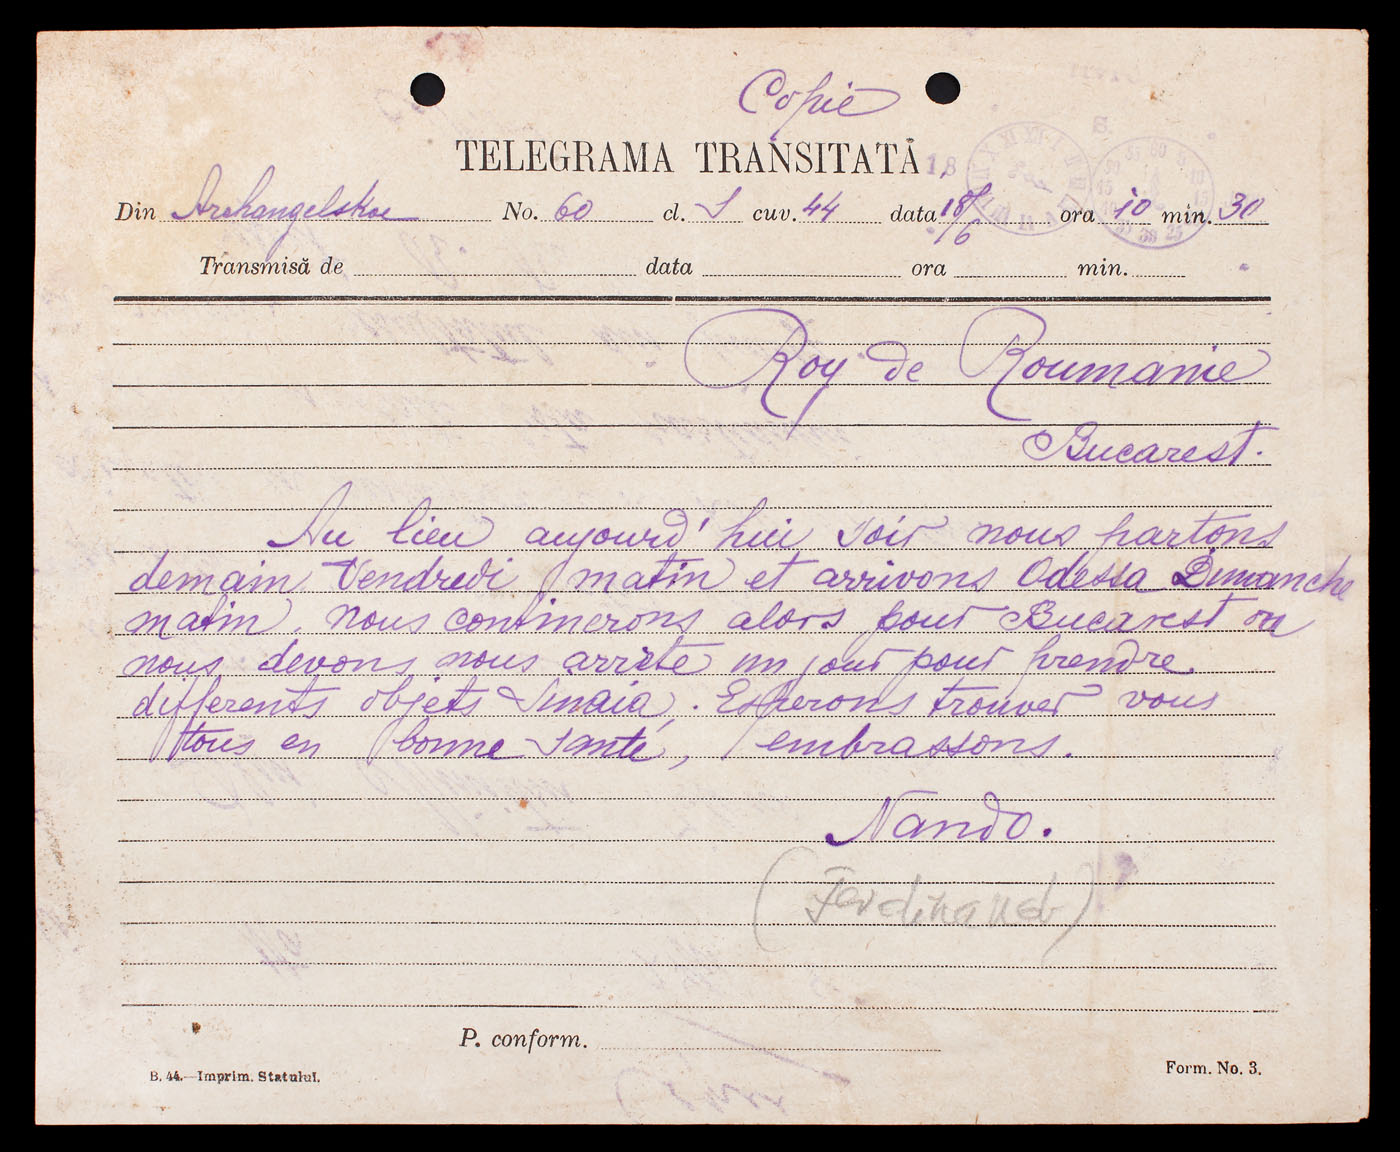 Copie
TELEGRAMA TRANSITATĂ
Din Archangelskoe No. 60 cl. S cuv. 44 data 18/6 ora 10 min. 30
Transmisă de data ora min.
Roy de Roumanie
Bucarest.
Au lieu aujourd'hui soir nous partons
demain Vendredi matin et arrivons Odessa Dimanche
matin. Nous continerons alors pour Bucarest ou
nous devons nous arrete un jour pour prendre
differents objets Sinaia. Esperons trouver vous
tous en bonne santé, embrassons.
Nando.
(Ferdinand)
P. conform.
B. 44.—Imprim. Statului.
Form. No. 3.